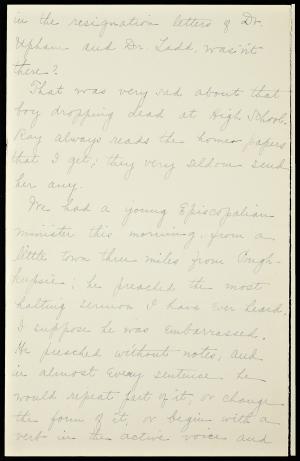 in the resignation letters of Dr.
Upham and Dr. Ladd, wasn't
there?
That was very sad about that
boy dropping dead at High School.
Ray always reads the home papers
that I get; they very seldom send
her any.
We had a young Episcopalian
minister this morning, from a
little town three miles from Pough-
kepsie; he preached the most
halting sermon I have ever heard,
I suppose he was embarrassed.
He preached without notes, and
in almost every sentence he
would repeat part of it, or change
the form of it, or begin with a
verb in the active voice and